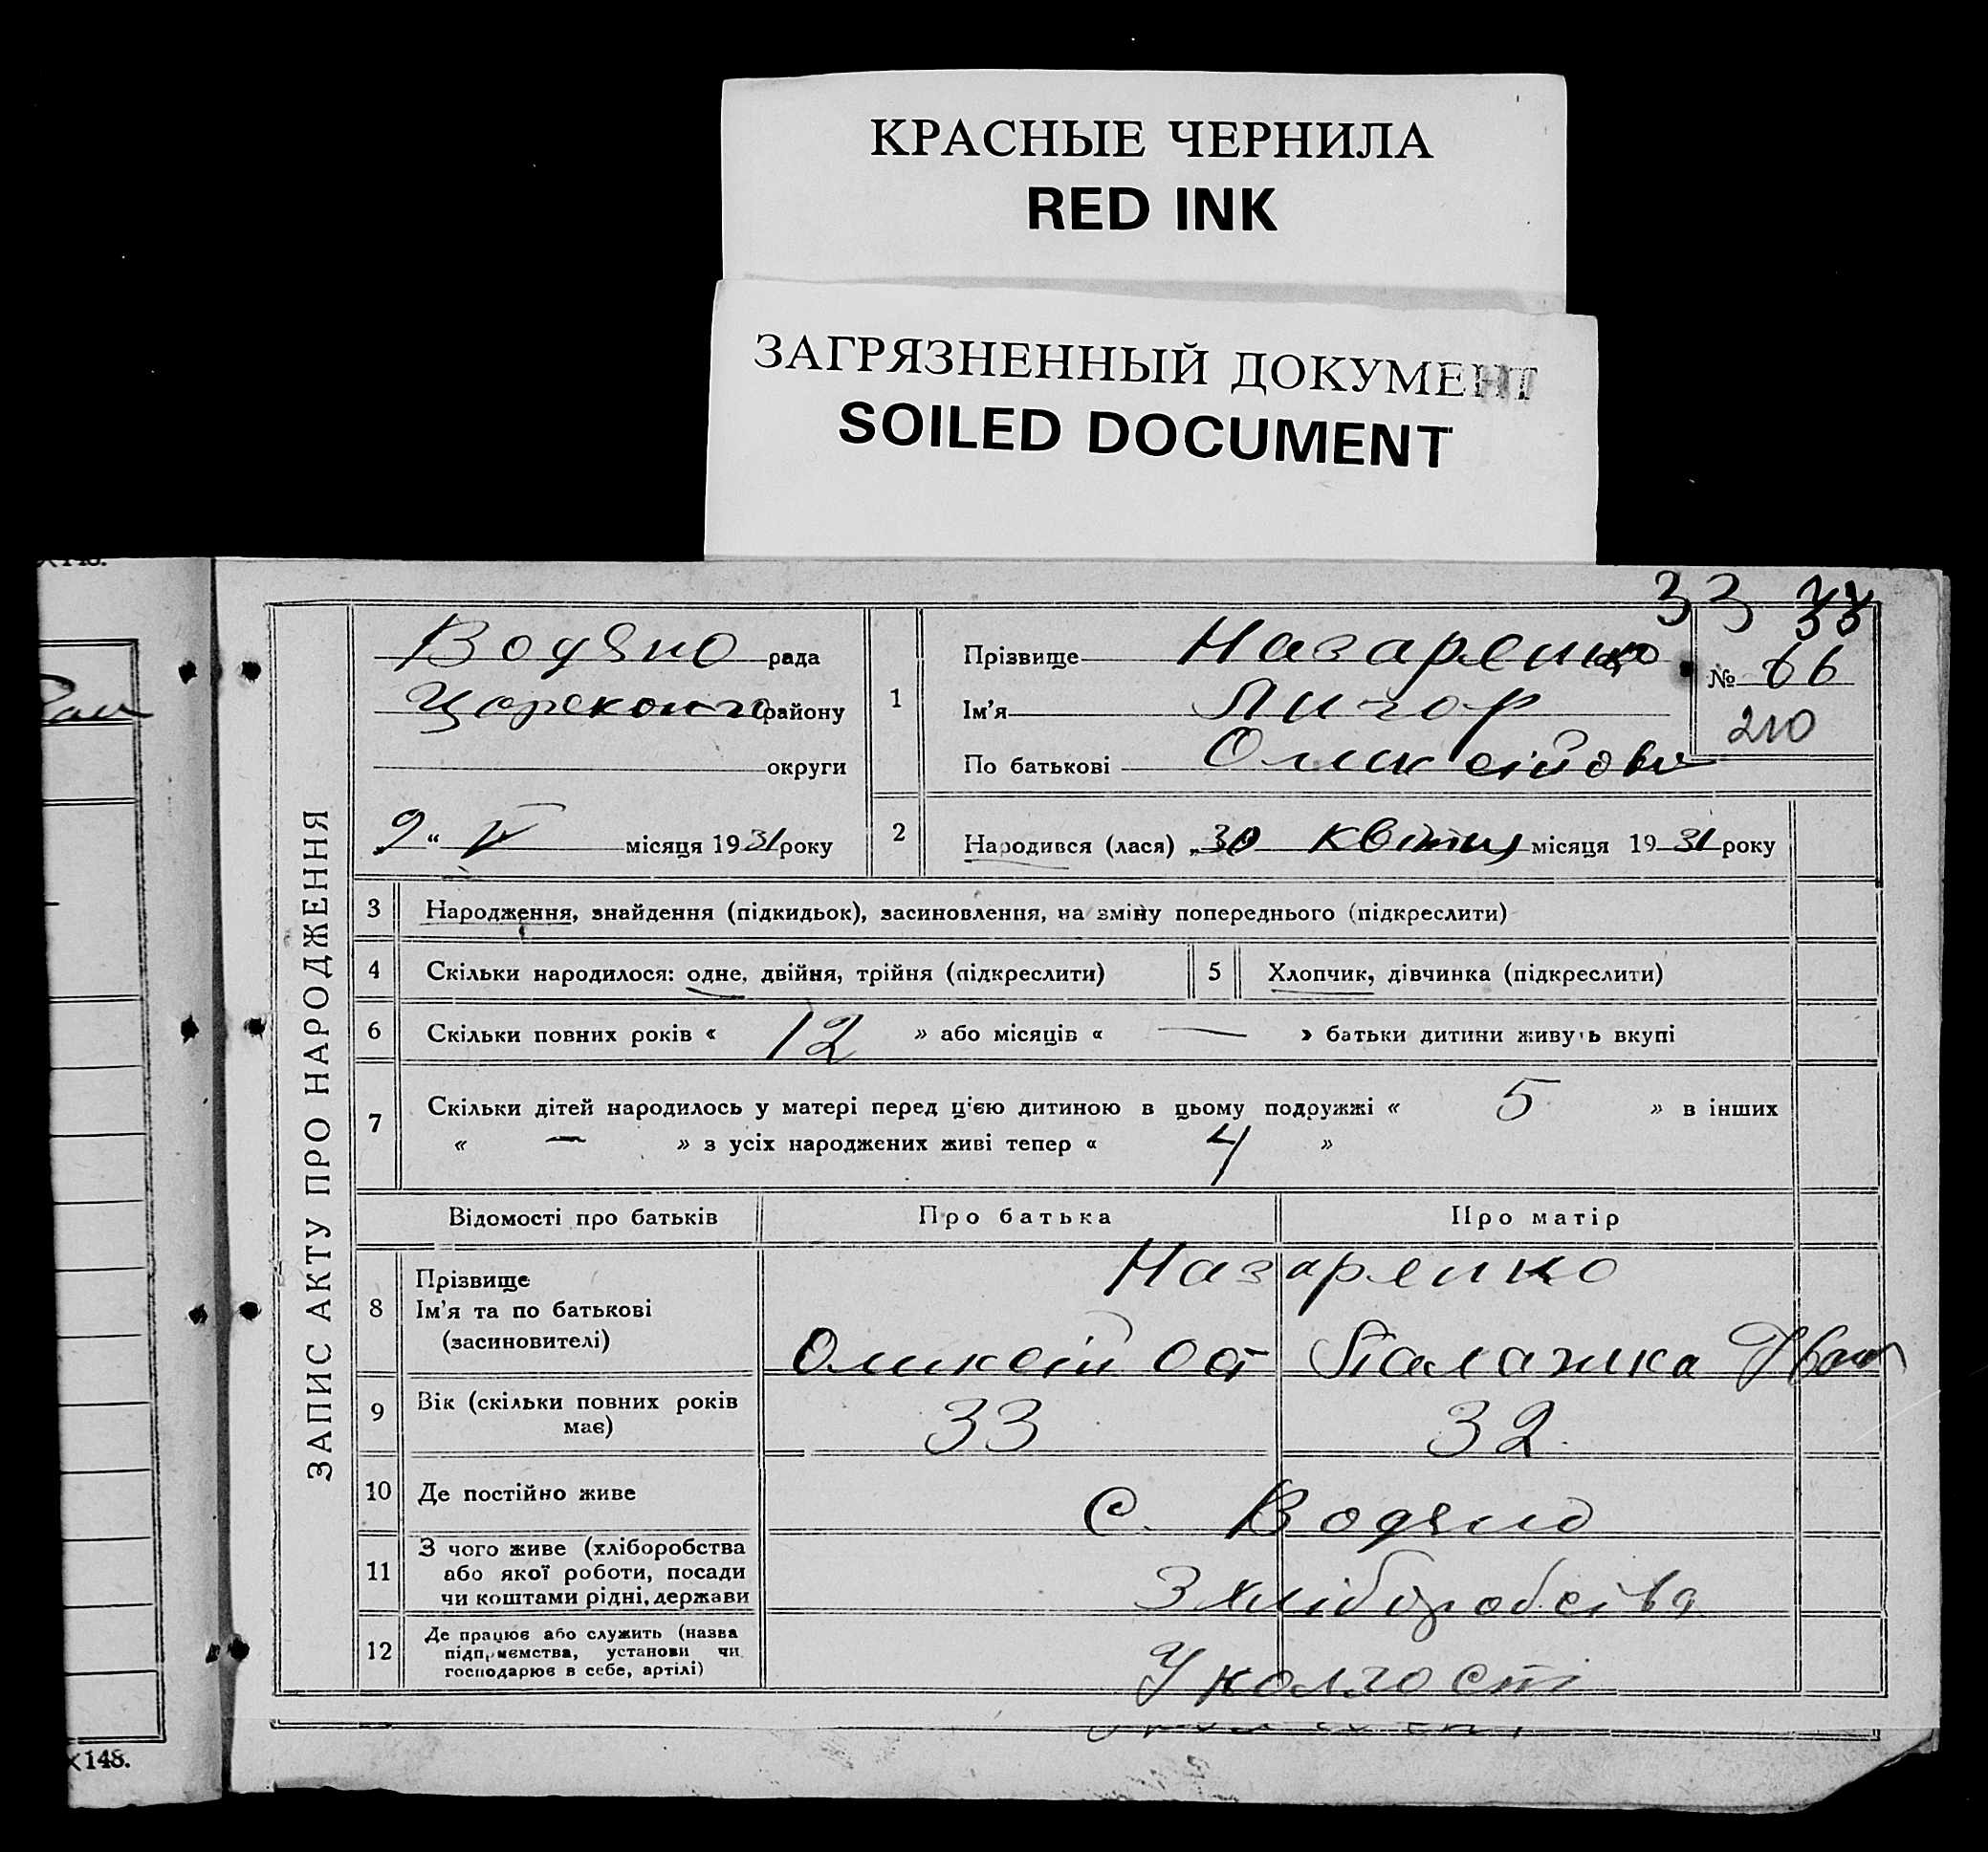 КРАСНЫЕ ЧЕРНИЛА
RED INK
ЗАГРЯЗНЕННЫЙ ДОКУМЕНТ
SOILED DOCUMENT
33 33
ЗАПИС АКТУ ПРО НАРОДЖЕННЯ
Водяно рада
району
округи
9 " V місяця 1931 року
1
Прізвище Назаренко
Ім'я Лигор
По батькові
№ 66
210
2 Народився (лася) „30 квітня місяця 1931 року
3 Народження, знайдення (підкидьок), засиновлення, на зміну попереднього (підкреслити)
4 Скільки народилося: одне, двійня, трійня (підкреслити) 5 Хлопчик, дівчинка (підкреслити)
6 Скільки повних років « 12 » або місяців « — » батьки дитини живуть вкупі
7 Скільки дітей народилось у матері перед цією дитиною в цьому подружжі « 5 » в інших
« — » з усіх народжених живі тепер « 4 »
Відомості про батьків Про батька Про матір
8 Прізвище
Ім'я та по батькові
(засиновителі)
Назаренко
Оликсій Ост Палажка Иван
9 Вік (скільки повних років
має)
33 32
10 Де постійно живе С. Водяно
11 З чого живе (хліборобства
або якої роботи, посади
чи коштами рідні, держави
З хліборобства
12 Де працює або служить (назва
підприємства, установи чи
господарює в себе, артілі)
У колгості
148.